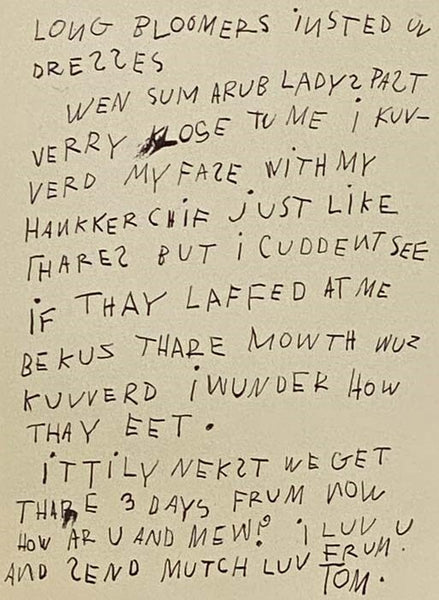 LONG BLOOMERS INSTED UV
DRESSES
WEN SUM ARUB LADYS PAST
VERRY KLOSE TU ME i KUV-
VERD MY FASE WITH MY
HANKKERCHIF JUST LIKE
THARES BUT i CUDDENT SEE
iF THAY LAFFED AT ME
BEKUS THARE MOWTH WUS
KUVVERD i WUNDER HOW
THAY EET.
iTTiLY NEKST WE GET
THARE 3 DAYS FRUM NOW
HOW AR U AND MEW? i LUV U
AND SEND MUTCH LUV FRUM.
TOM.